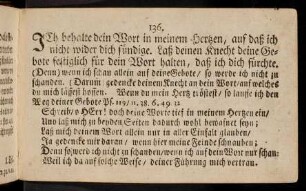 136.
ICh behalte dein Wort in meinem Hertzen, auf daß ich
nicht wider dich sündige. Laß deinen Knecht deine Ge-
bote festiglich für dein Wort halten, daß ich dich fürchte.
(Denn) wenn ich schau allein auf deine Gebote/ so werde ich nicht zu
schanden. (Darum) gedencke deinem Knecht an dein Wort/ auf welches
du mich lässest hoffen. Wenn du mein Hertz tröstest/ so lauffe ich den
Weg deiner Gebote Ps. 119/ 11. 38. 6. 49. 32
Schreib/ o HErr! doch deine Wort tief in meinem Hertzen ein/
Und laß mich zu beyden Seiten dadurch wohl bewafnet seyn;
Laß mich deinem Wort allein nur in aller Einfalt glauben/
Ja gedencke nur daran/ wenn hier meine Feinde schnauben;
Denn so werd ich nicht zu schanden/ wenn ich auf dein Wort nur schau:
Weil ich da auf solche Weise/ deiner Führung mich vertrau.